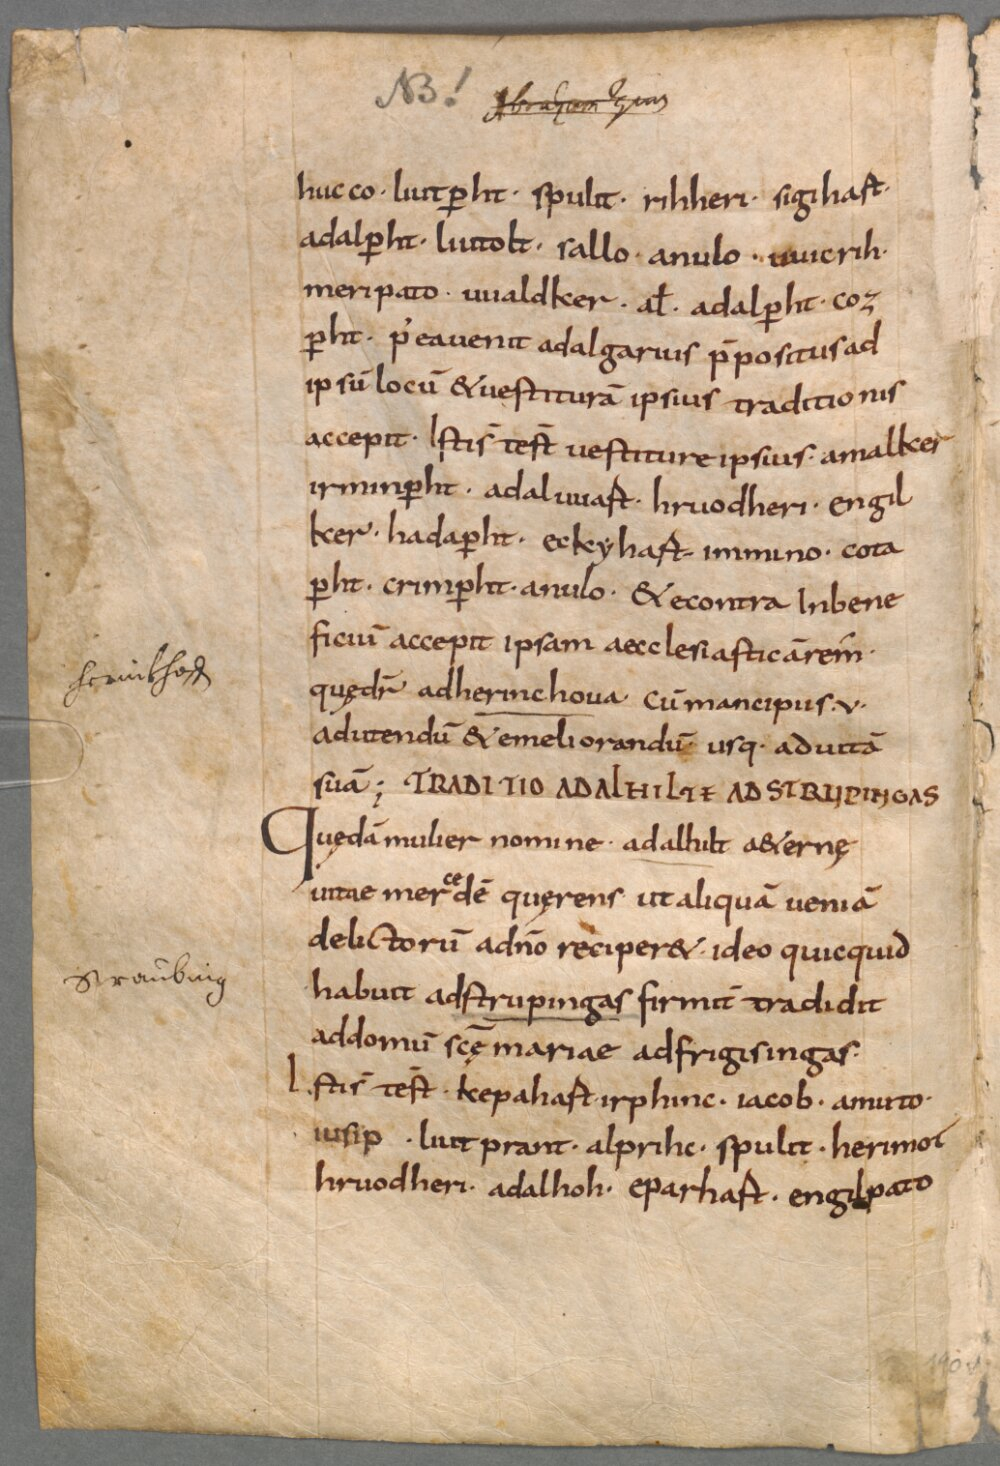 NB!
Abraham
hucco· luitp̄ht· spulit· rihheri· sigihaft·
adalp̄ht· liutolt· sallo· anulo· uuicrih·
meripato· uualdker· al̄· adalp̄ht· coz
p̄ht· p̓ea uenit adalgarius p̄positus ad
ipsū locū & uestiturā ipsius traditionis
accepit· Istis̄ test̄ uestiture ipsius· amalker
irminp̄ht· adaluuaft· hruodheri· engil
ker· hadap̄ht· eckyhaft immino· cota
p̄ht· crimp̄ht· anulo· & econtra In bene
ficiū accepit ipsam aecclesiasticā rēm·
quędr̄ ad herinchoua cū mancipiis·v·
ad utendū & emeliorandū usq· ad uitā
suā; TRADITIO ADALHILTE AD STRUPINGAS
Quędā mulier nomine adalhilt aeternę
uitae mercedē quęrens ut aliquā ueniā
delictorū ad dn̄o reciper& ideo quicquid
habuit ad strupingas firmit̄ tradidit
ad domū scę̄ mariae ad frigisingas·
Istis̄ test̄· kepahaft irphinc· iacob· amuto·
iusip· luitprant· alprihc· spulit· herimot
hruodheri· adalhoh· eparhaft· engilpato
Straubing
190v